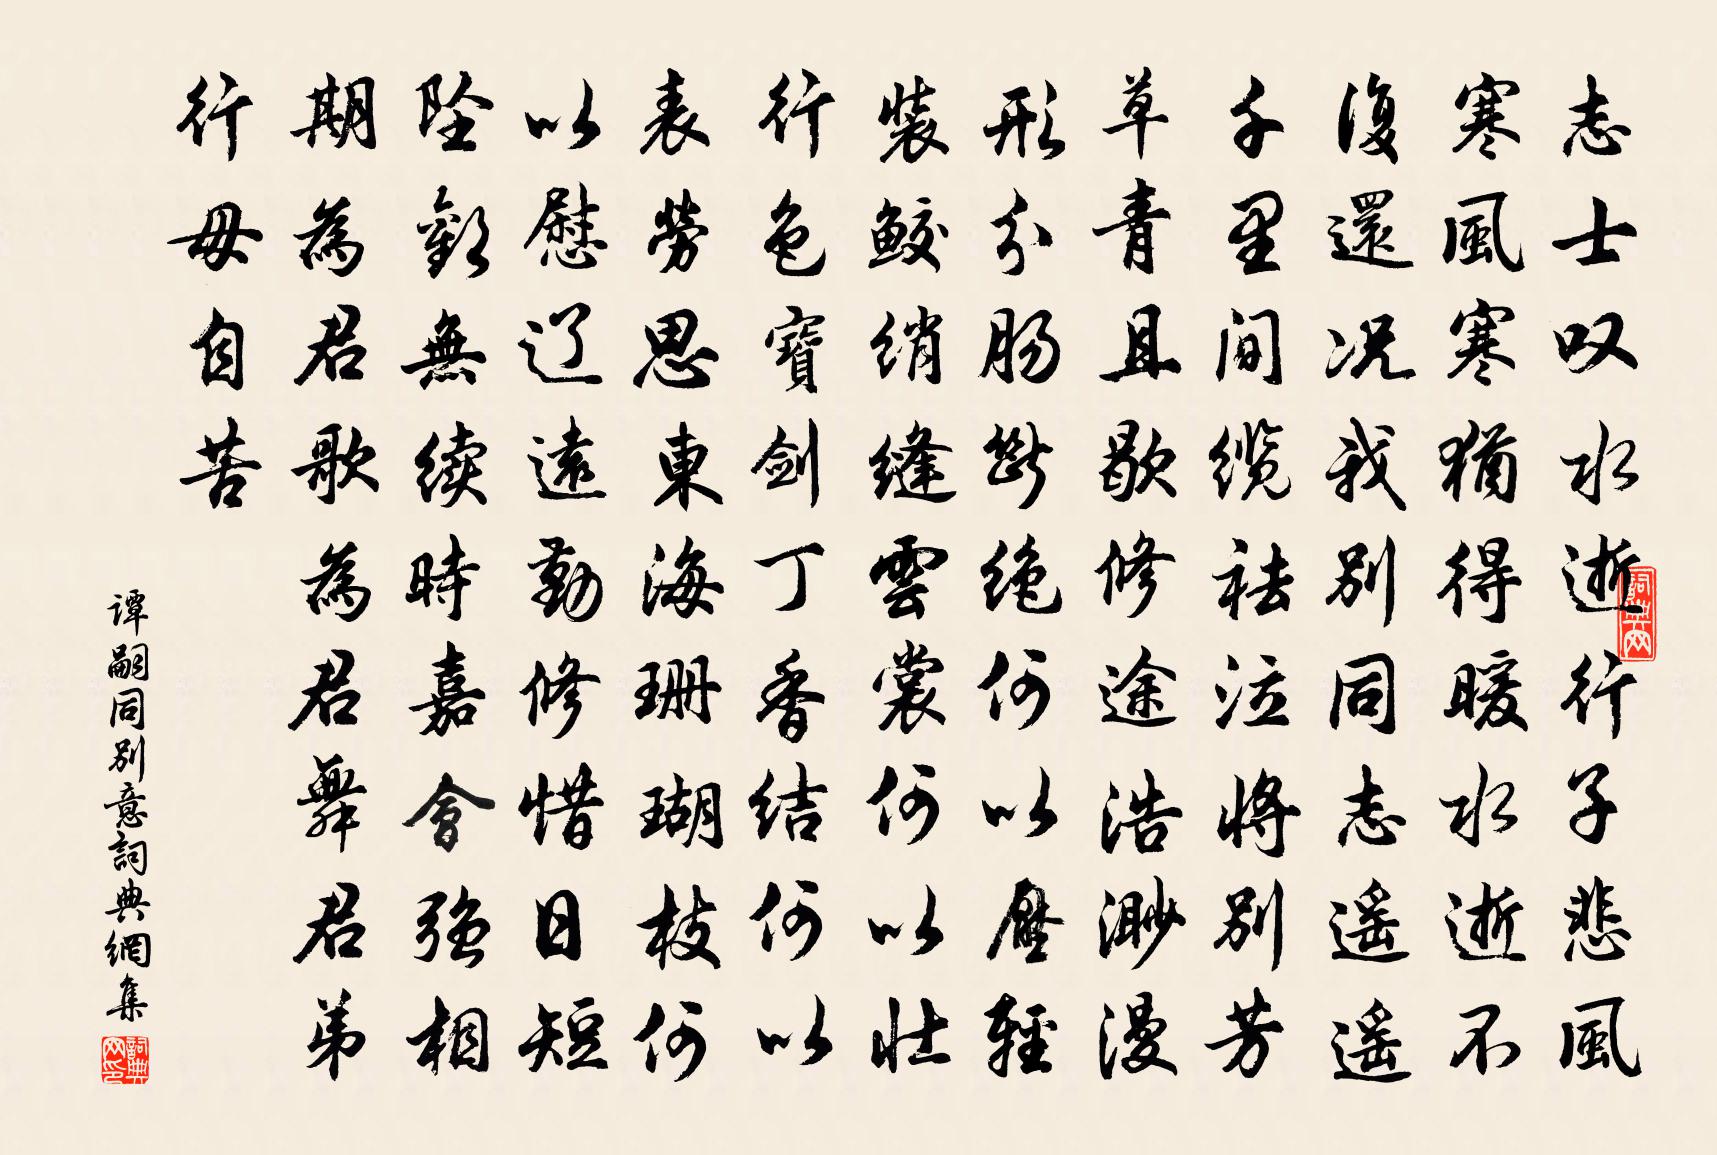 志士叹水逝行子悲風
寒風寒猶得暖水逝不
復還况我别同志遥遥
千里间缆祛泣将别芳
草青且歇修途浩渺漫
形分肠斷绝何以壓輕
裝鲛绡縫雲裳何以壮
行色寶劍丁香结何以
表勞思東海珊瑚枝何
以慰辽遠勤修惜日短
坠歡無续時嘉會強相
期為君歌為君舞君弟
行毋自苦
谭嗣同别意詞典網集
詞典网
詞典网印